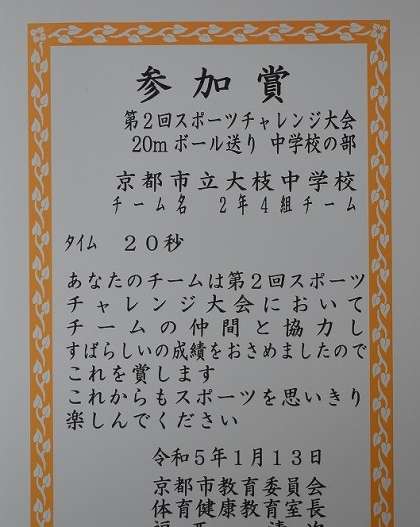 参加賞
第2回スポーツチャレンジ大会
20mボール送り 中学校の部
京都市立大枝中学校
チーム名 2年4組チーム
タイム 20秒
あなたのチームは第2回スポーツ
チャレンジ大会において
チームの仲間と協力し
すばらしいの成績をおさめましたので
これを賞します
これからもスポーツを思いきり
楽しんでください
令和5年1月13日
京都市教育委員会
体育健康教育室長